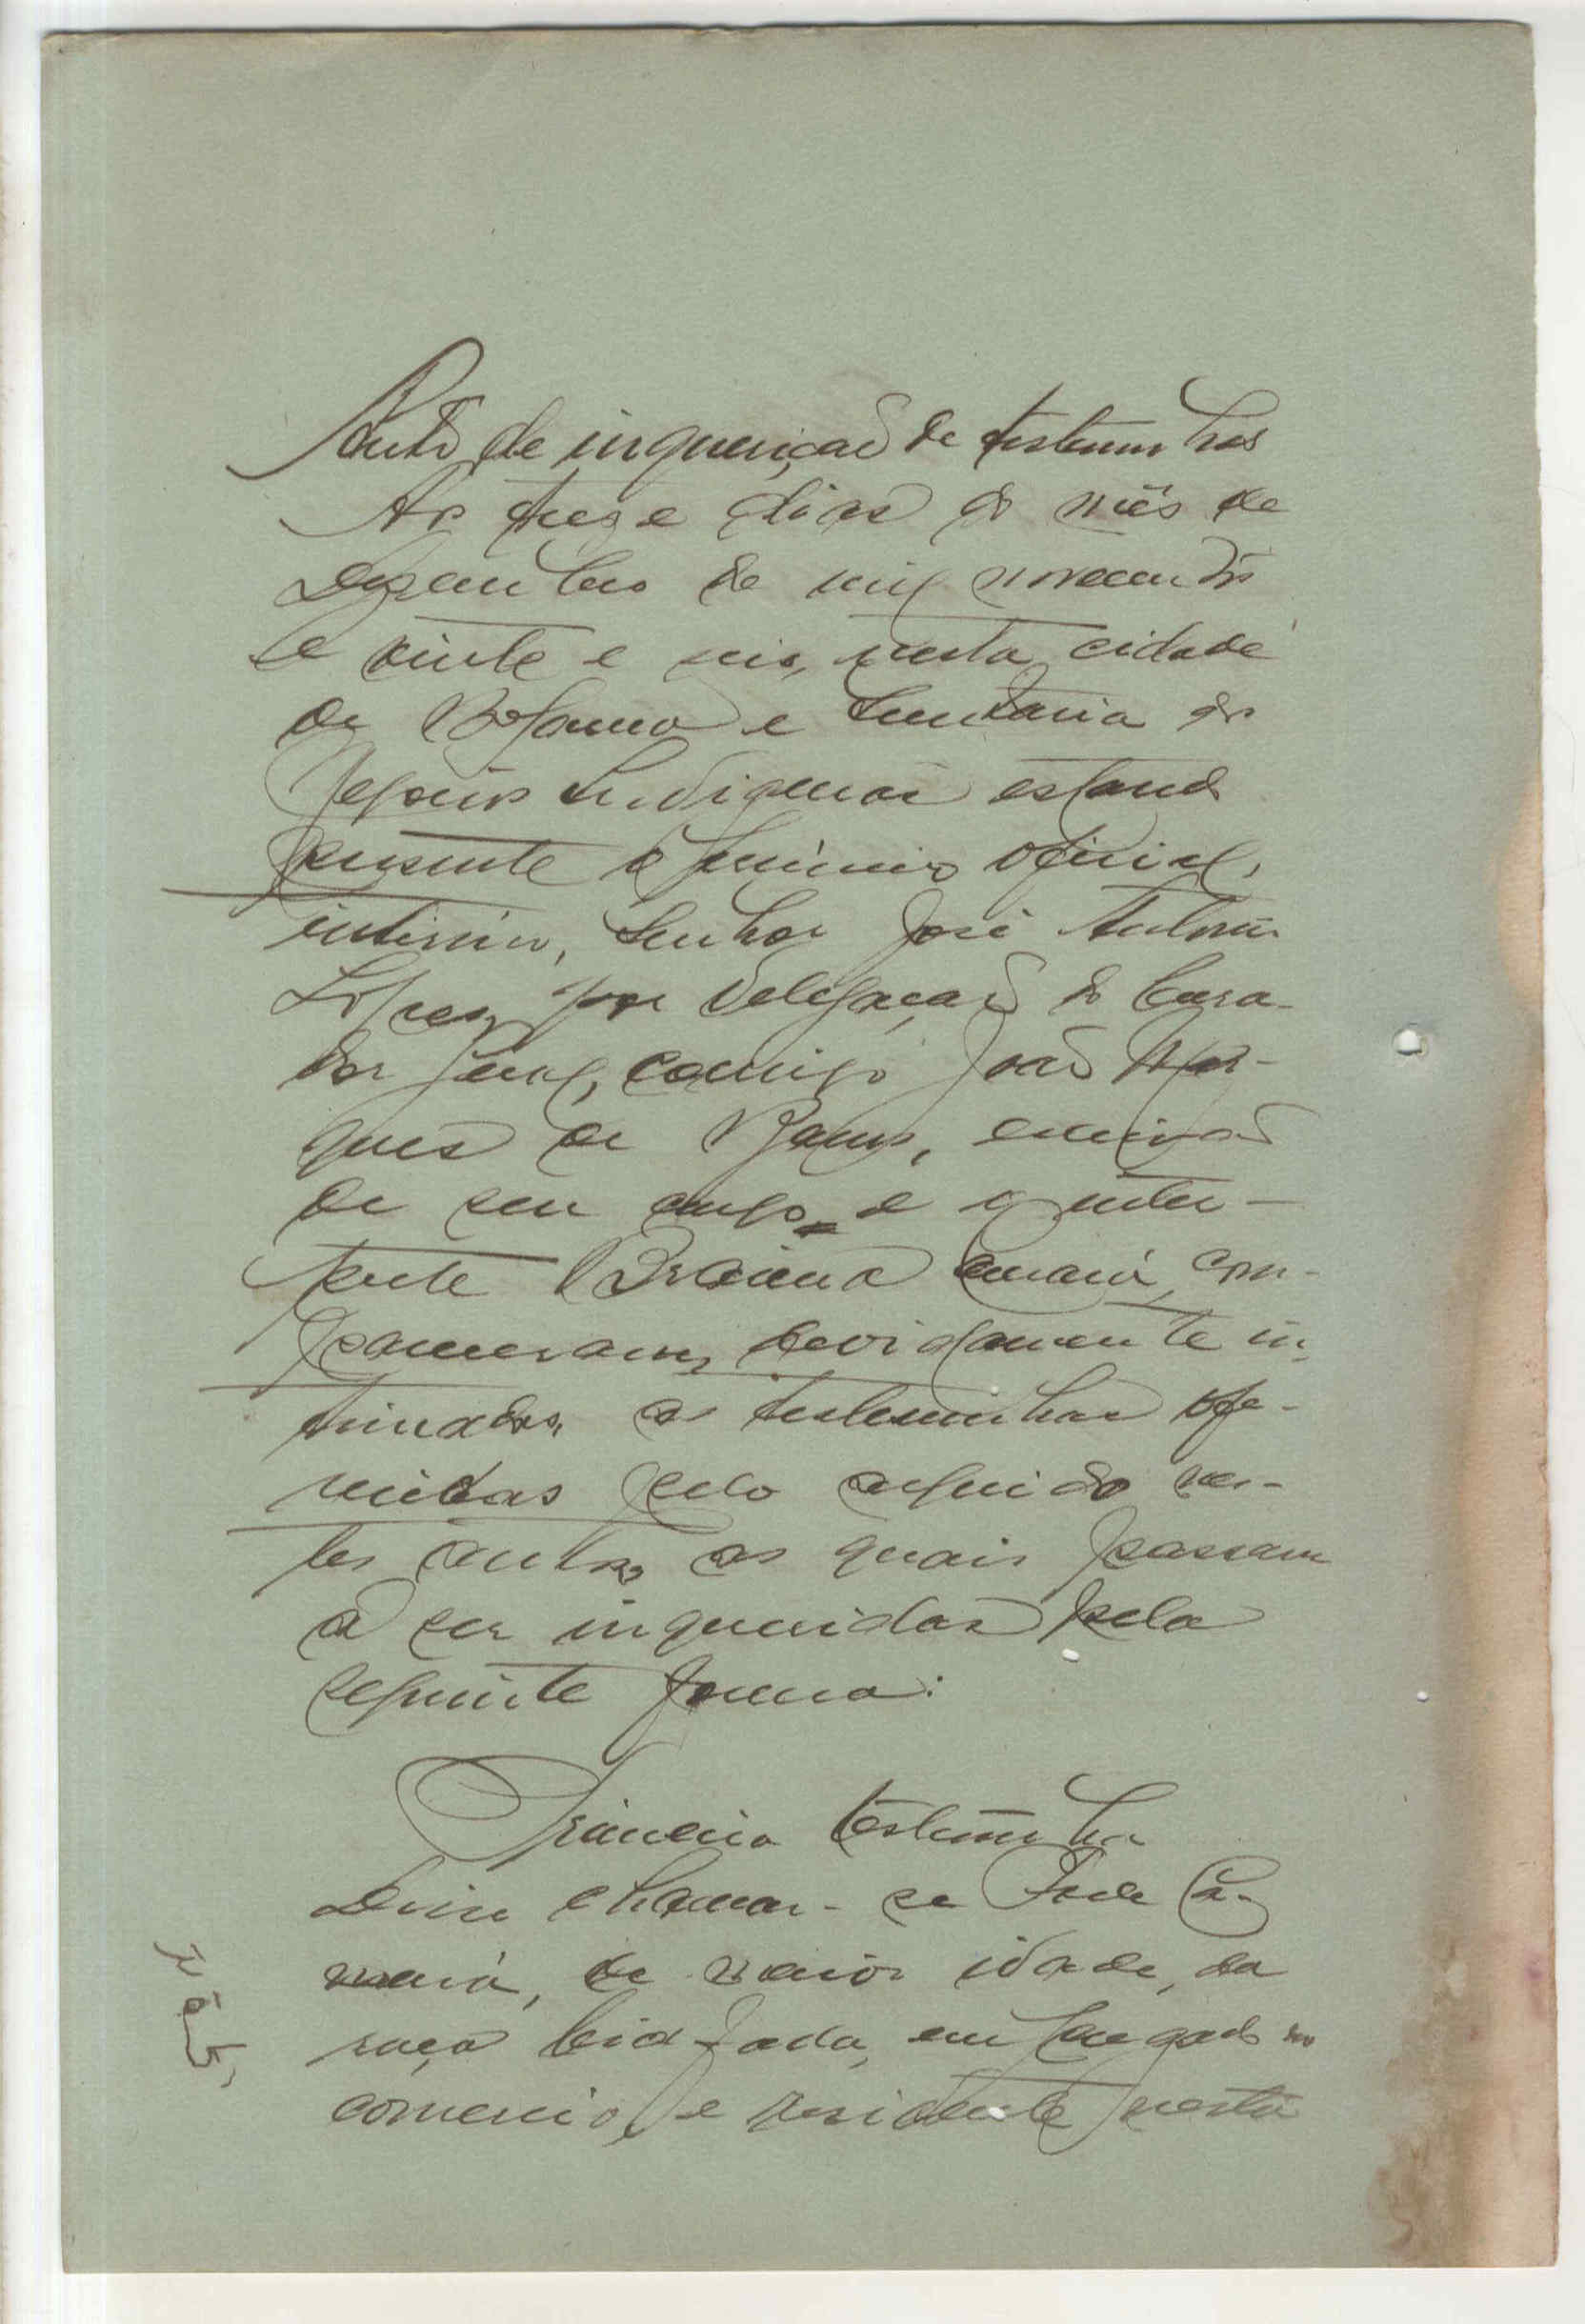 Auto de inquerição de testemunhas
Ao treze dias do mês de
Dezembro de mil novecentos
e vinte e seis, nesta cidade
de Bolama e Secretaria dos
Negócios Indigenas estando
presente o primeiro oficial,
interino, Senhor José Antonio
Lopes, por delegação do Cura-
dor Geral, comigo João Mar-
ques de Barros, escrivão
de seu cargo e o inter-
prete Braima Camará, com-
pareceram, devidamente in-
timadas, as testemunhas ofe-
recidas pelo arguido nes-
tes autos, as quais passam
a ser inqueridas pela
seguinte forma:
Primeira testemunha
Disse chamar-se Ca-
mará, de maior idade, da
raça empregado no
comercio, e residente nesta